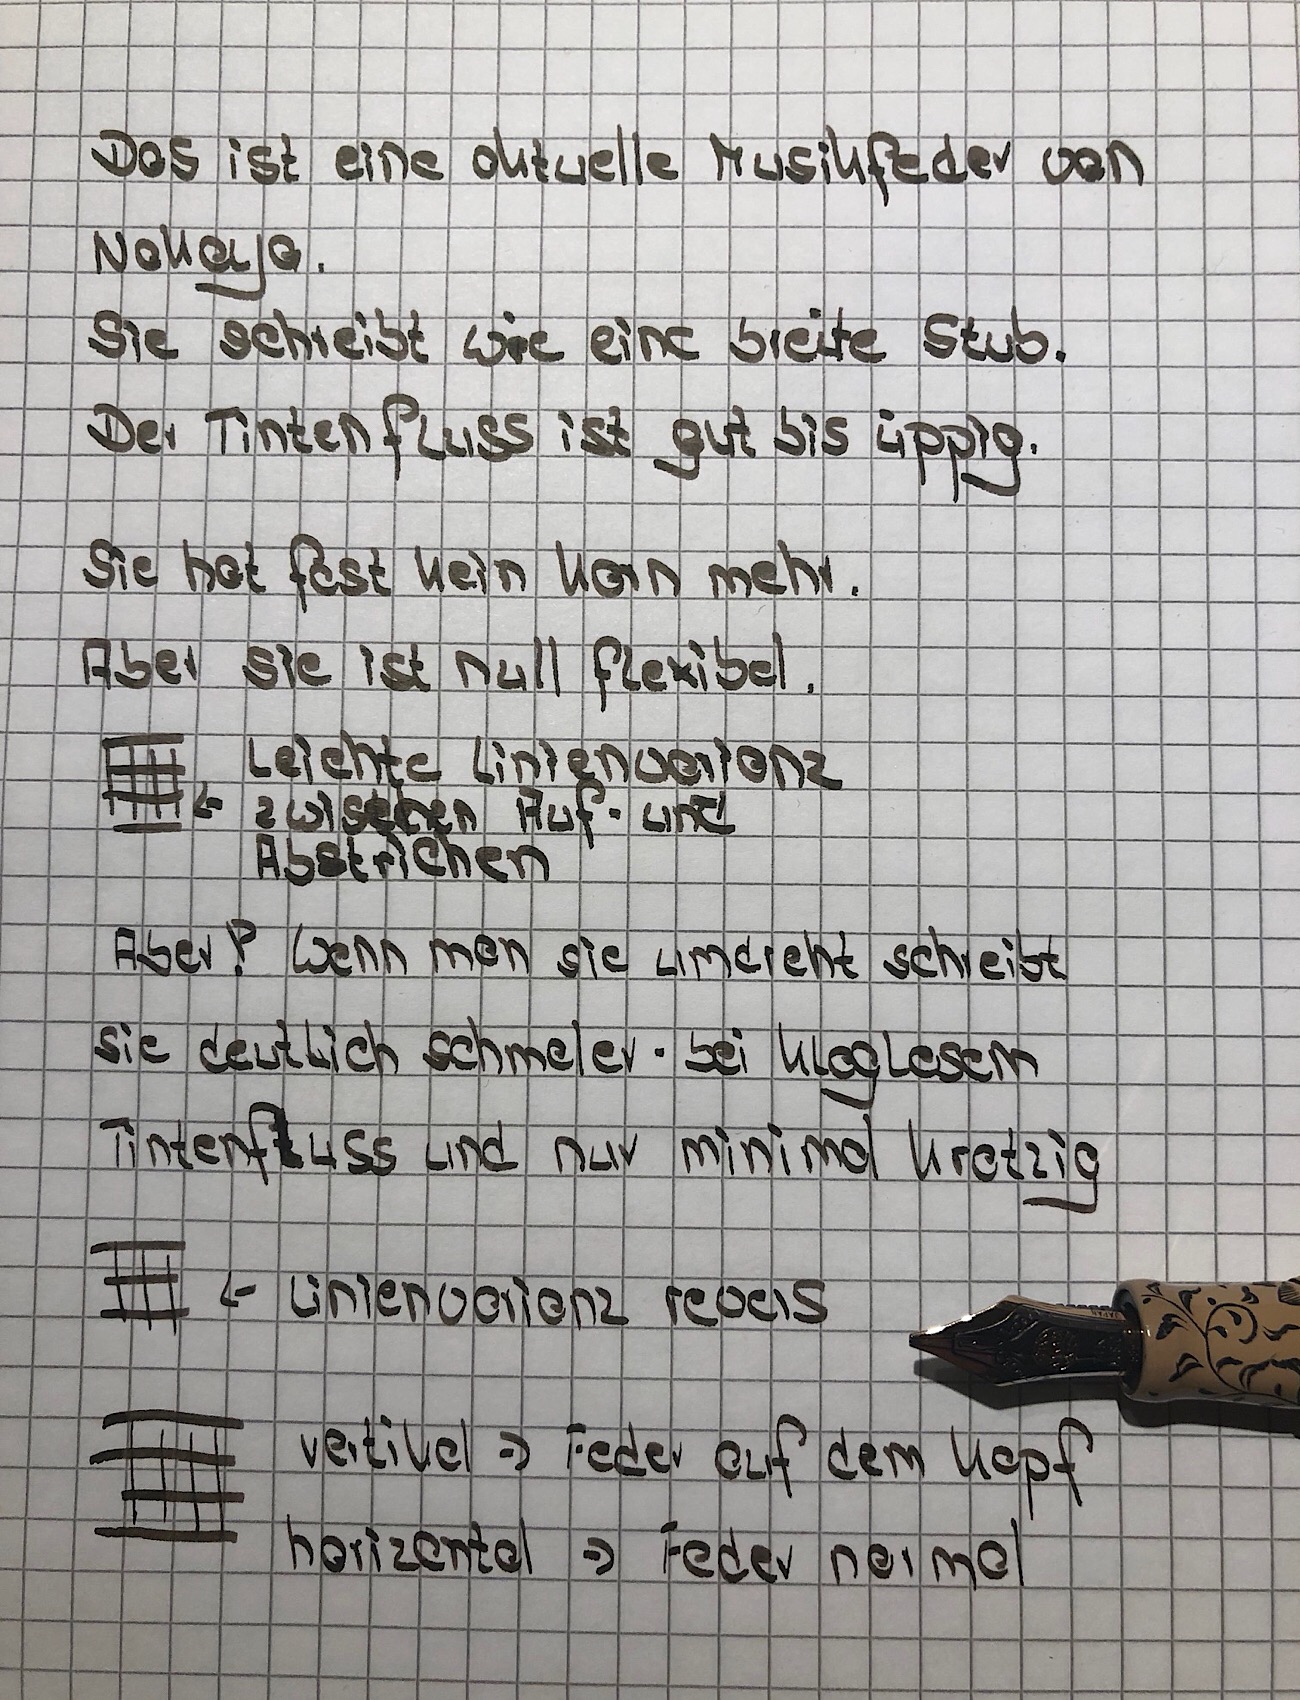 Das ist eine aktuelle Musikfeder von
Nakaya.
Sie schreibt wie eine breite Stub.
Der Tintenfluss ist gut bis üppig.
Sie hat fast kein Korn mehr.
Aber sie ist null flexibel.
← Leichte Linienvarianz
zwischen Auf- und
Abstrichen
Aber? Wenn man sie umdreht schreibt
sie deutlich schmaler - bei klaglosem
Tintenfluss und nur minimal kratzig
← Linienvarianz revers
vertikal ⇒ Feder auf dem Kopf
horizontal ⇒ Feder normal
JAPAN